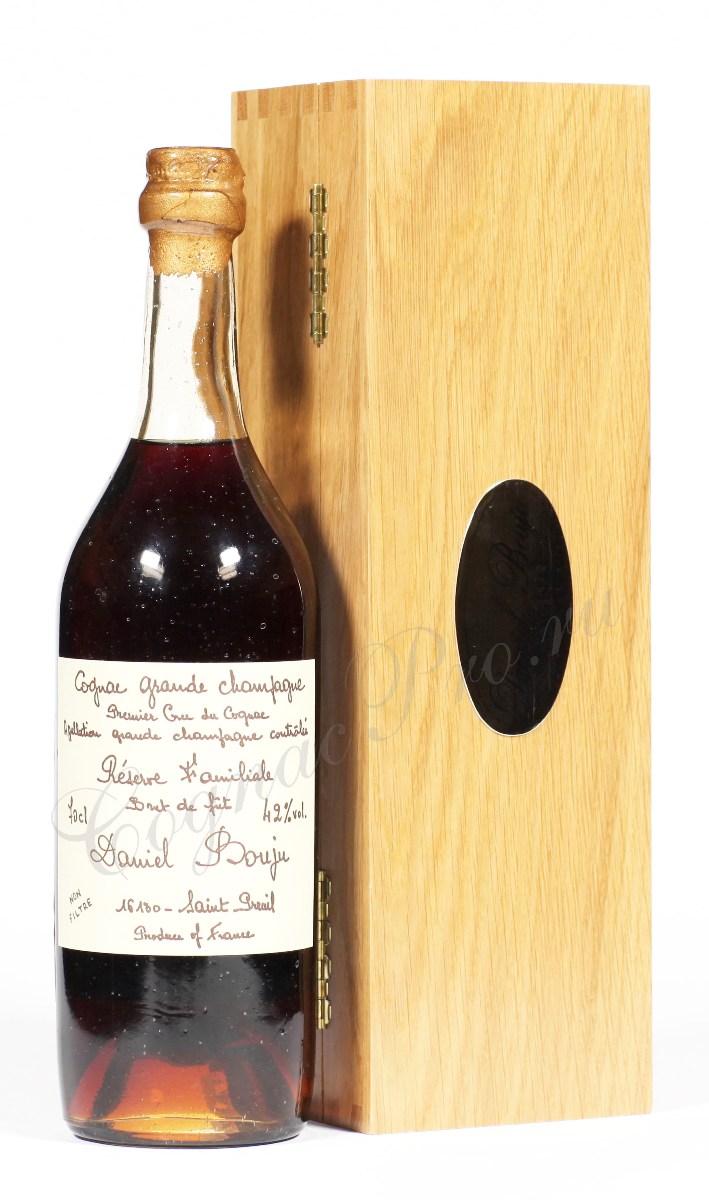 Cognac grande champagne
Premier Cru du Cognac
Appellation grande champagne contrôlée
Réserve Familiale
70cl Brut de fût 42%vol.
Daniel Bouju
NON
FILTRE
16130 - Saint Preuil
Produce of France
CognacPro.ru